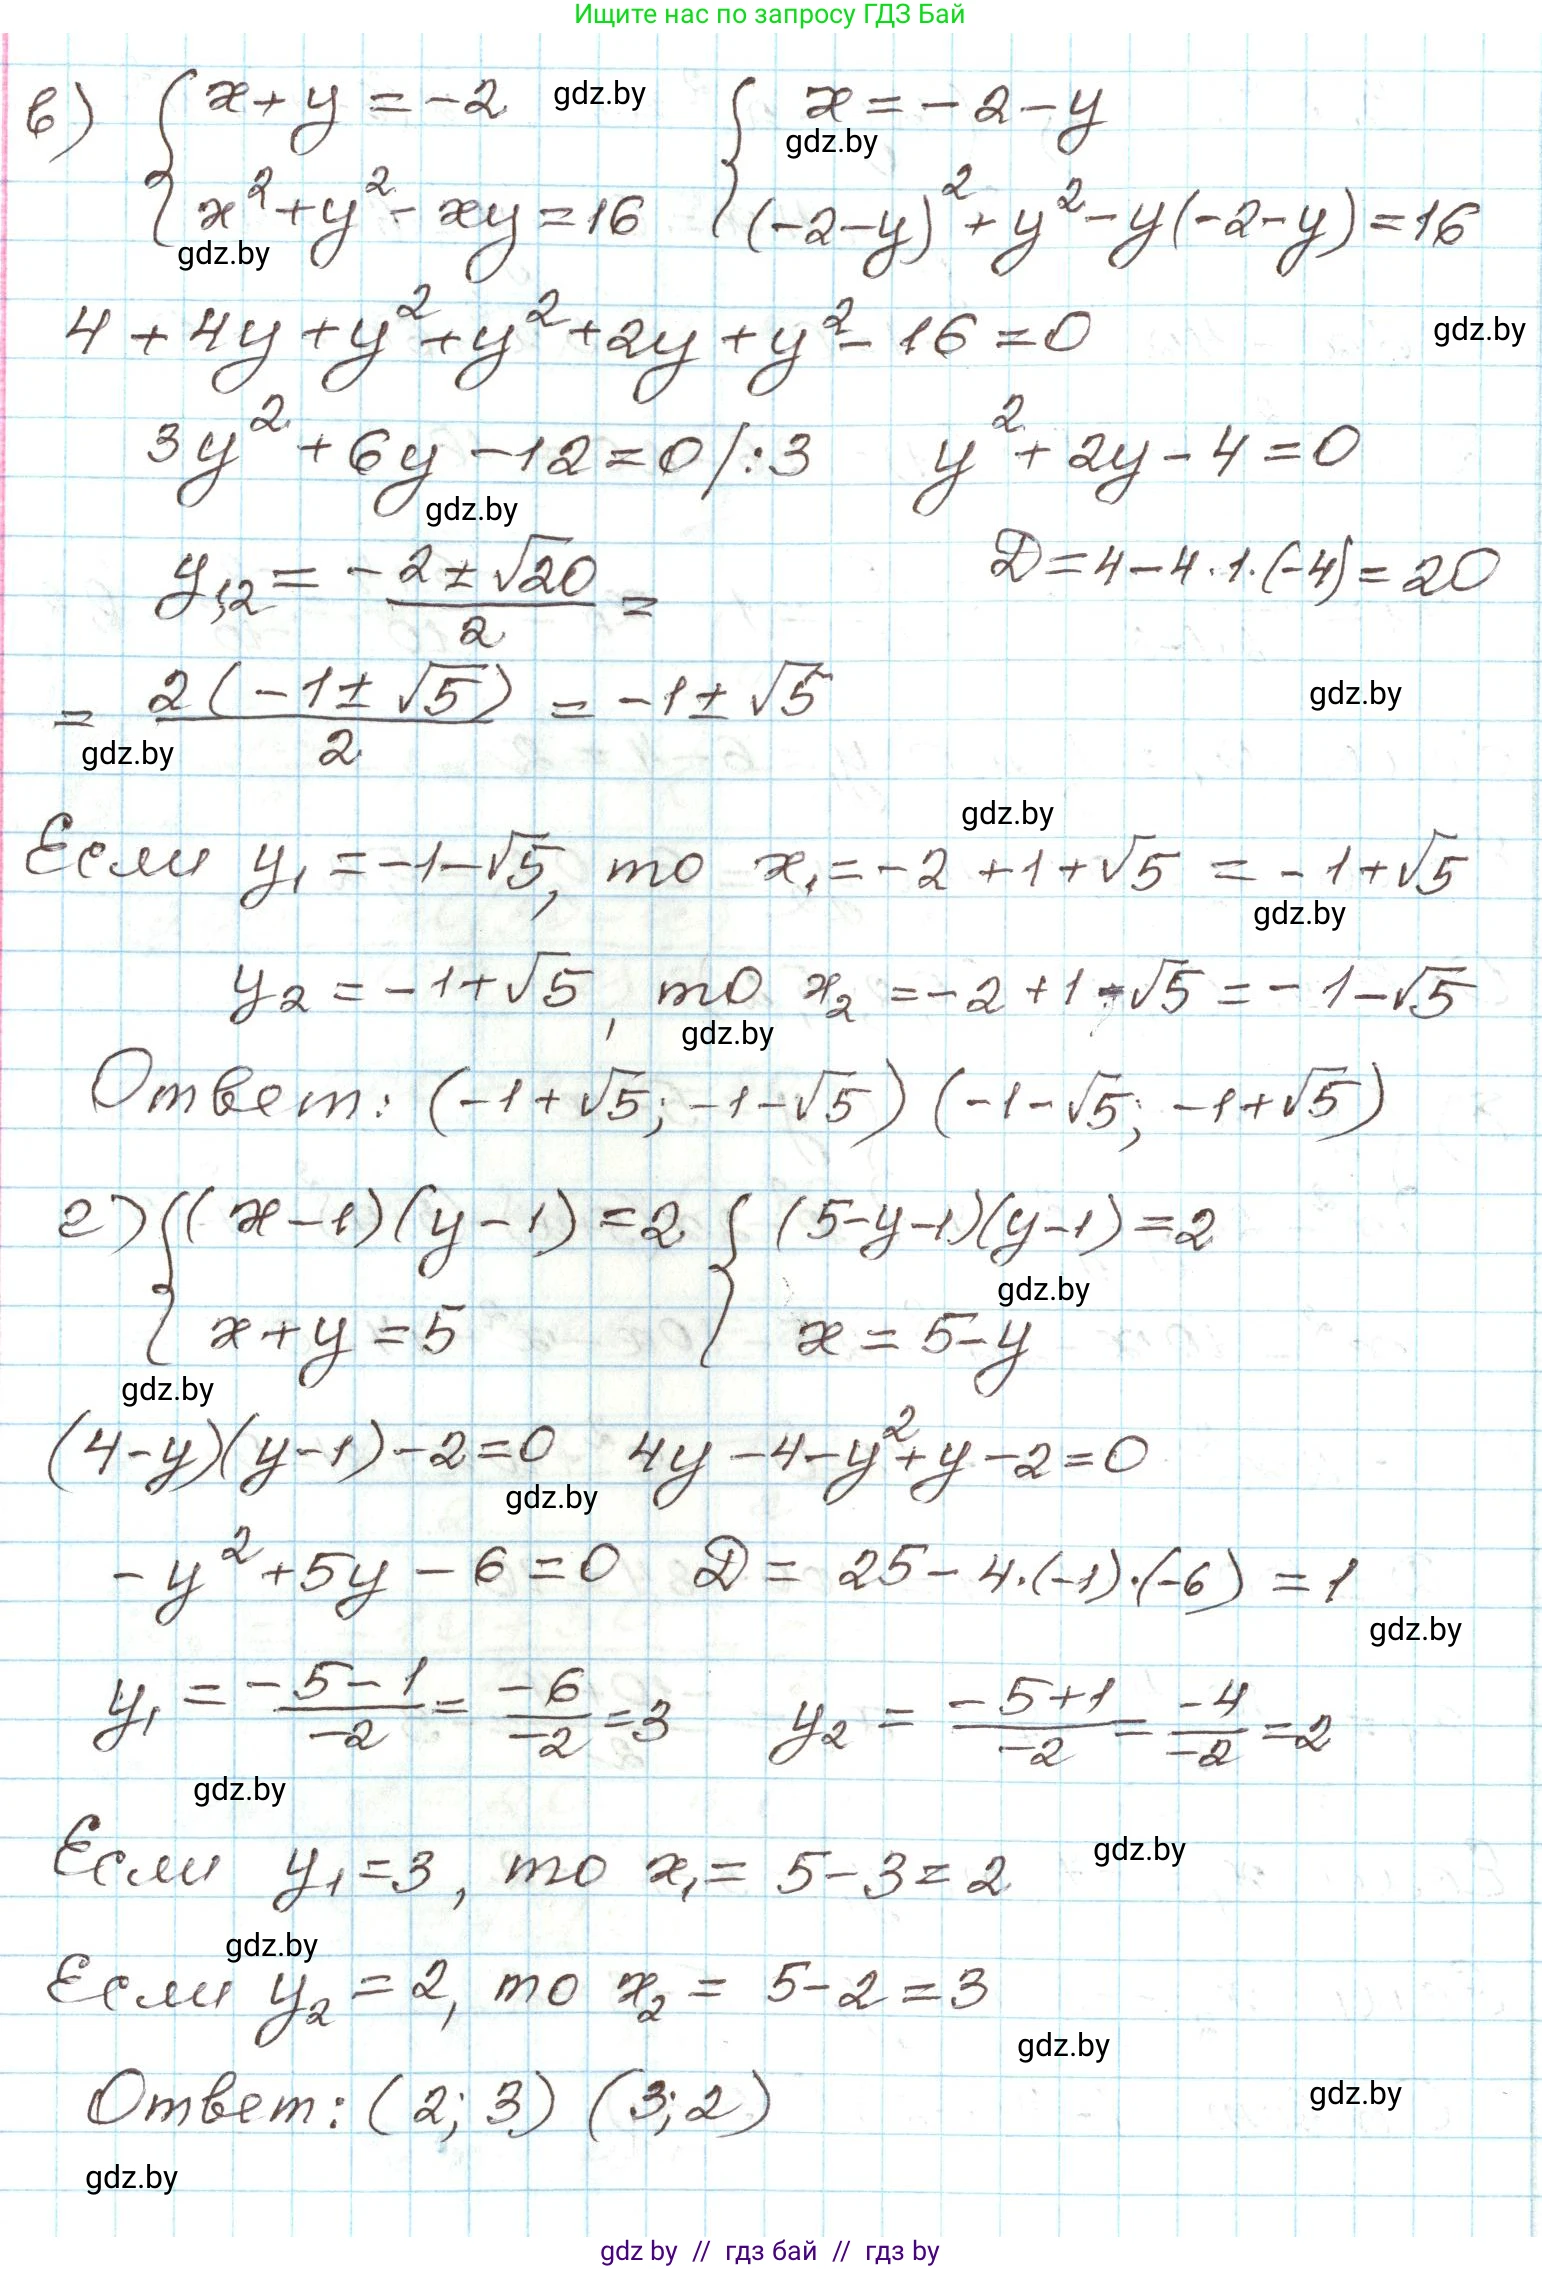 Ищите нас по запросу ГДЗ Бай
в) { x + y = -2 gdz.by { x = -2 - y
gdz.by
x² + y² - xy = 16 (-2-y)² + y² - y(-2-y) = 16
gdz.by
4 + 4y + y² + y² + 2y + y² - 16 = 0 gdz.by
3y² + 6y - 12 = 0 /:3 y² + 2y - 4 = 0
gdz.by
y₁,₂ = (-2 ± √20)/2 = D = 4 - 4·1·(-4) = 20
= 2(-1 ± √5)/2 = -1 ± √5 gdz.by
gdz.by
gdz.by
Если y₁ = -1-√5, то x₁ = -2 + 1 + √5 = -1 + √5
gdz.by
y₂ = -1+√5, то x₂ = -2 + 1 - √5 = -1 - √5
gdz.by
Ответ: (-1+√5; -1-√5) (-1-√5; -1+√5)
г) { (x-1)(y-1) = 2 { (5-y-1)(y-1) = 2
gdz.by
x + y = 5 x = 5-y
gdz.by
(4-y)(y-1) - 2 = 0 4y - 4 - y² + y - 2 = 0
gdz.by
-y² + 5y - 6 = 0 D = 25 - 4·(-1)·(-6) = 1
gdz.by
y₁ = (-5-1)/-2 = -6/-2 = 3 y₂ = (-5+1)/-2 = -4/-2 = 2
gdz.by
gdz.by
Если y₁ = 3, то x₁ = 5 - 3 = 2
gdz.by
Если y₂ = 2, то x₂ = 5 - 2 = 3
gdz.by
gdz.by
Ответ: (2; 3) (3; 2)
gdz.by
gdz by // гдз бай // гдз by